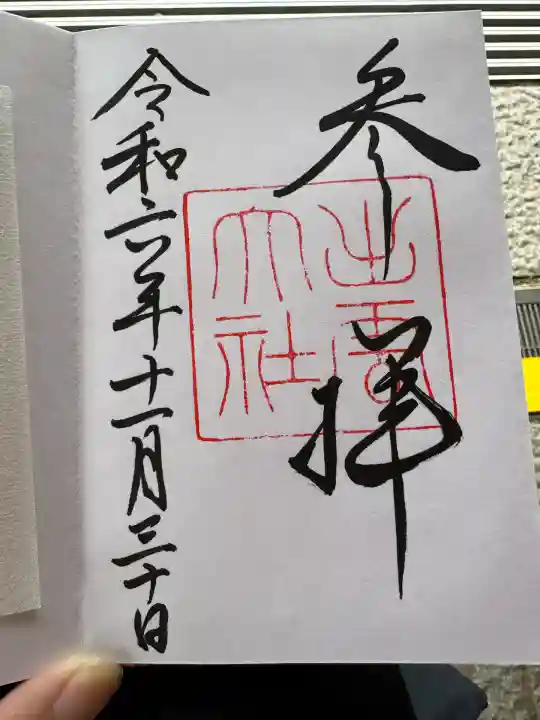 参拝
出雲
大社
令和六年十一月三十日